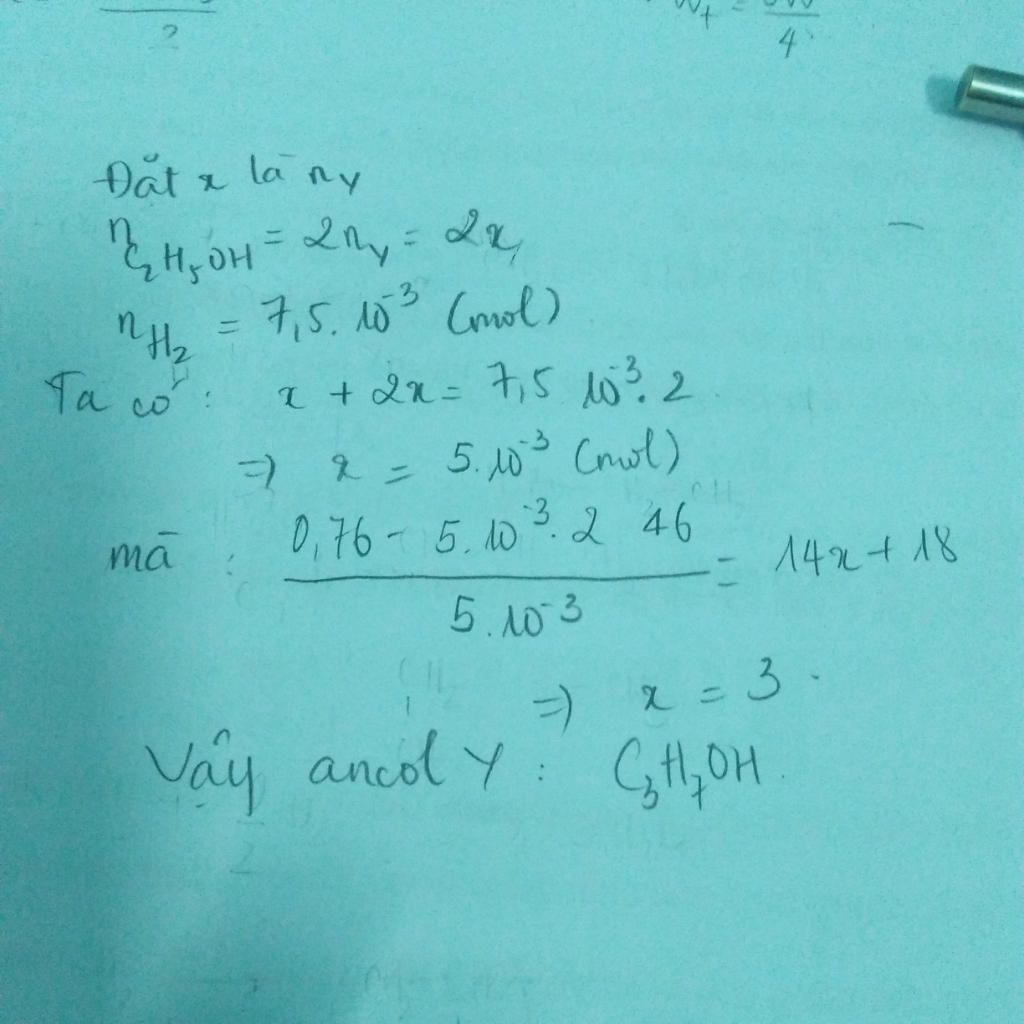 2
4
Đặt x là n_Y
n_C₂H₅OH = 2n_Y = 2x,
n_H₂ = 7,5.10⁻³ (mol)
Ta có : x + 2x = 7,5 10⁻³. 2
=> x = 5.10⁻³ (mol)
mà : (0,76 - 5.10⁻³. 2 46)/(5.10⁻³) = 14x + 18
=> x = 3.
Vậy ancol Y : C₃H₇OH.